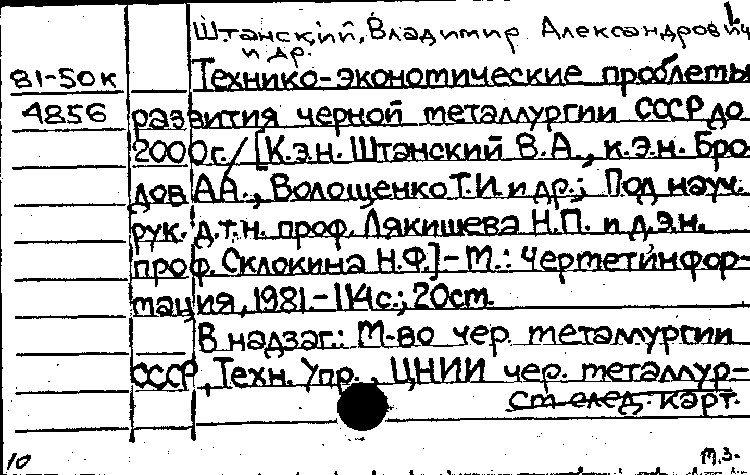 1.
Штанский, Владимир Александрович
и др.
81-50к Технико-экономические проблемы
4856 развития черной металлургии СССР до
2000г./ [К.э.н. Штанский В.А., к.э.н. Бро
дов А.А., Волощенко Т.И. и др.; Под науч.
рук. д.т.н. проф. Лякишева Н.П. и д.э.н.
проф. Склокина Н.Ф.] - М.: Черметинфор-
мация, 1981. - 114с.; 20см.
В надзаг.: М-во чер. металлургии
СССР, Техн. Упр., ЦНИИ чер. металлур-
см след. карт.
10 М.З.